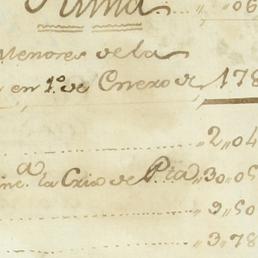 Suma ,, ,, 06
Menores de la
en 1º de Enero de 178
,, 2,, 04
la Cria de Pia ,, 30,, 05
,, 9,, 50
,, 3,, 78